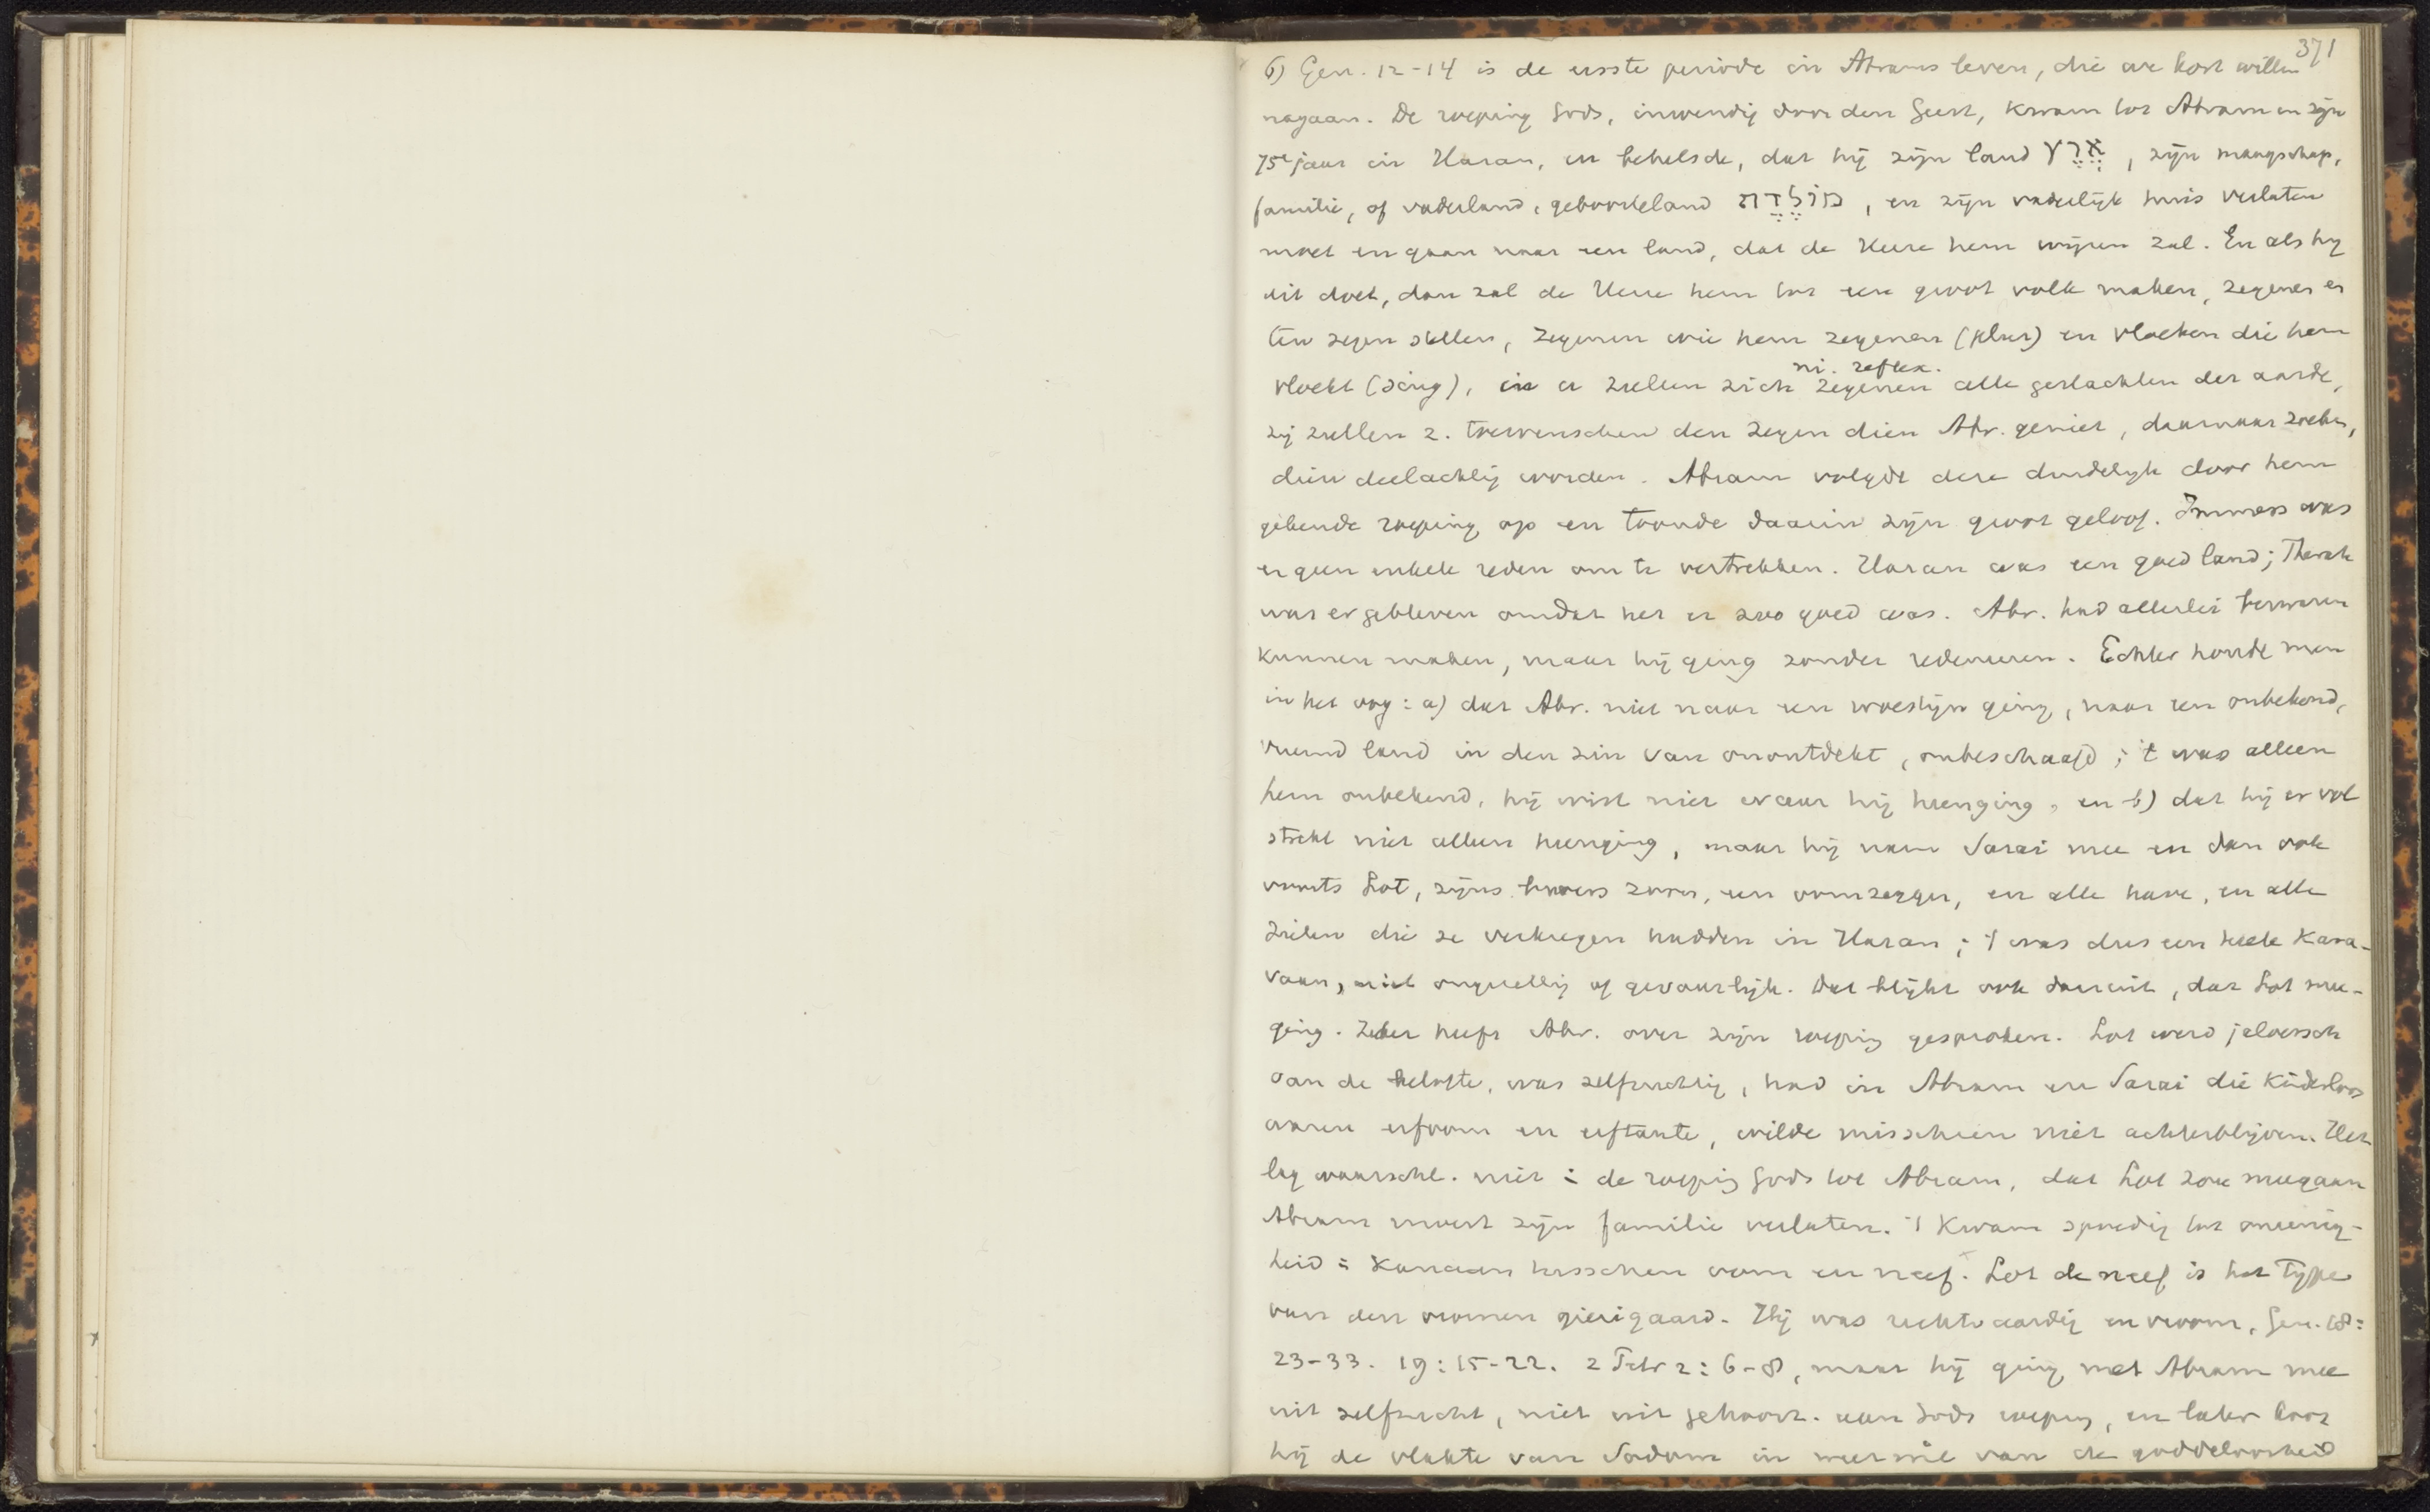 371
6) Gen. 12-14 is de eerste periode in Abrams leven, die we kort willen
nagaan. De roeping Gods, inwendig door den Geest, kwam tot Abram in zijn
75e jaar in Haran, en behelsde, dat hij zijn land אֶרֶץ, zijn maagschap,
familie, of vaderland, geboorteland מוֹלֶדֶת, en zijn vaderlijk huis verlaten
moet en gaan naar een land, dat de Heere hem wijzen zal. En als hij
dit doet, dan zal de Heere hem tot een groot volk maken, zegenen en
ten zegen stellen, zegenen wie hem zegenen (plur) en vloeken die hem
ni. reflex.
vloekt (sing), en er zullen zich zegenen alle geslachten der aarde,
zij zullen z. toewenschen den zegen dien Abr. geniet, daarnaar zoeken,
dien deelachtig worden. Abram volgde deze duidelijk door hem
gekende roeping op en toonde daarin zijn groot geloof. Immers was
er geen enkele reden om te vertrekken. Haran was een goed land; Therah
was er gebleven omdat het er zoo goed was. Abr. had allerlei bezwaren
kunnen maken, maar hij ging zonder redeneeren. Echter houde men
in het oog: a) dat Abr. niet naar een woestijn ging, naar een onbekend,
vreemd land in den zin van onontdekt, onbeschaafd; 't was alleen
hem onbekend, hij wist niet waar hij heenging, en b) dat hij er vol
strekt niet alleen heenging, maar hij nam Sarai mee en dan ook
voorts Lot, zijns broers zoon, een oomzegger, en alle have, en alle
zielen die ze verkregen hadden in Haran; 't was dus een heele Kara-
vaan, niet ongezellig of gevaarlijk. Dat blijkt ook daaruit, dat Lot mee-
ging. Zeker heeft Abr. over zijn roeping gesproken. Lot werd jaloersch
van de belofte, was zelfzuchtig, had in Abram en Sarai die kinderloos
waren erfoom en erftante, wilde misschien niet achterblijven. Het
lag waarschl. niet in de roeping Gods tot Abram, dat Lot zou meegaan
Abram moest zijn familie verlaten. 't Kwam spoedig tot oneenig-
heid in Kanaan tusschen oom en neef. Lot de neef is het type
van den vromen gierigaard. Hij was rechtvaardig en vroom, Gen. 18:
23-33. 19:15-22. 2 Petr 2:6-8, maar hij ging met Abram mee
uit zelfzucht, niet uit gehoorz. aan Gods roeping, en later koos
hij de vlakte van Sodom in weerwil van de goddeloosheid